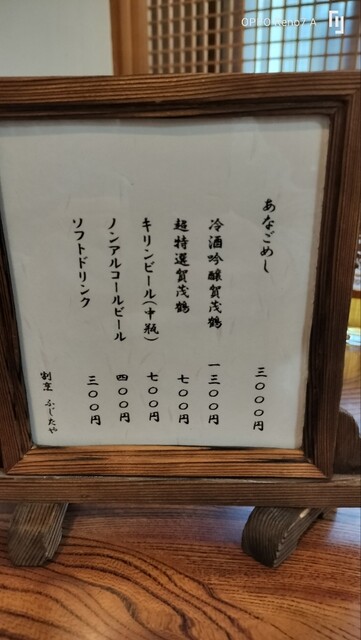 OPPO Reno7 A
あなごめし 三〇〇〇円
冷酒吟醸賀茂鶴 一三〇〇円
超特選賀茂鶴 七〇〇円
キリンビール(中瓶) 七〇〇円
ノンアルコールビール 四〇〇円
ソフトドリンク 三〇〇円
割烹 ふじたや